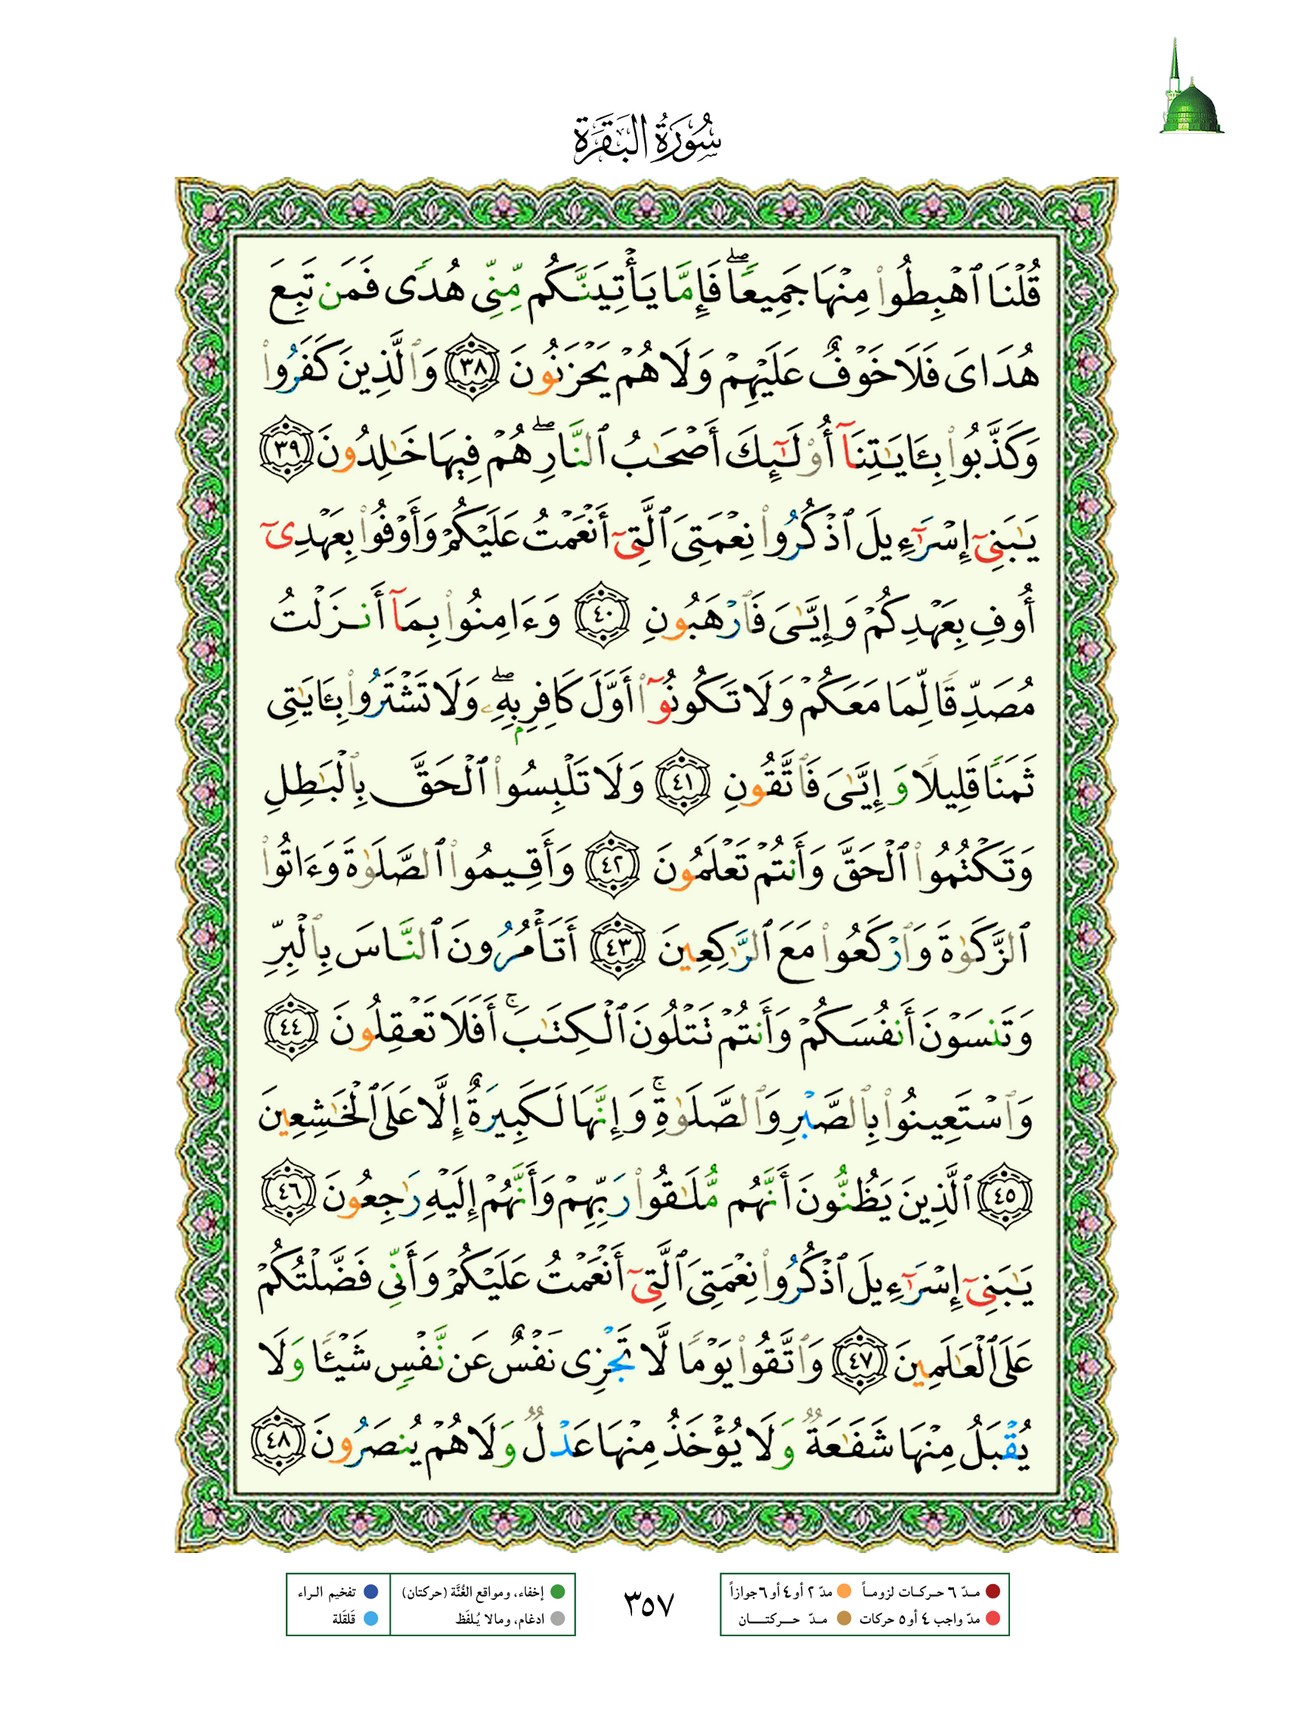 سُورَةُ البَقَرَةِ
قُلۡنَا ٱهۡبِطُواْ مِنۡهَا جَمِيعٗاۖ فَإِمَّا يَأۡتِيَنَّكُم مِّنِّي هُدٗى فَمَن تَبِعَ
هُدَايَ فَلَا خَوۡفٌ عَلَيۡهِمۡ وَلَا هُمۡ يَحۡزَنُونَ ٣٨ وَٱلَّذِينَ كَفَرُواْ
وَكَذَّبُواْ بِـَٔايَٰتِنَآ أُوْلَٰٓئِكَ أَصۡحَٰبُ ٱلنَّارِۖ هُمۡ فِيهَا خَٰلِدُونَ ٣٩
يَٰبَنِيٓ إِسۡرَٰٓءِيلَ ٱذۡكُرُواْ نِعۡمَتِيَ ٱلَّتِيٓ أَنۡعَمۡتُ عَلَيۡكُمۡ وَأَوۡفُواْ بِعَهۡدِيٓ
أُوفِ بِعَهۡدِكُمۡ وَإِيَّٰيَ فَٱرۡهَبُونِ ٤٠ وَءَامِنُواْ بِمَآ أَنزَلۡتُ
مُصَدِّقٗا لِّمَا مَعَكُمۡ وَلَا تَكُونُوٓاْ أَوَّلَ كَافِرِۭ بِهِۦۖ وَلَا تَشۡتَرُواْ بِـَٔايَٰتِي
ثَمَنٗا قَلِيلٗا وَإِيَّٰيَ فَٱتَّقُونِ ٤١ وَلَا تَلۡبِسُواْ ٱلۡحَقَّ بِٱلۡبَٰطِلِ
وَتَكۡتُمُواْ ٱلۡحَقَّ وَأَنتُمۡ تَعۡلَمُونَ ٤٢ وَأَقِيمُواْ ٱلصَّلَوٰةَ وَءَاتُواْ
ٱلزَّكَوٰةَ وَٱرۡكَعُواْ مَعَ ٱلرَّٰكِعِينَ ٤٣ أَتَأۡمُرُونَ ٱلنَّاسَ بِٱلۡبِرِّ
وَتَنسَوۡنَ أَنفُسَكُمۡ وَأَنتُمۡ تَتۡلُونَ ٱلۡكِتَٰبَۚ أَفَلَا تَعۡقِلُونَ ٤٤
وَٱسۡتَعِينُواْ بِٱلصَّبۡرِ وَٱلصَّلَوٰةِۚ وَإِنَّهَا لَكَبِيرَةٌ إِلَّا عَلَى ٱلۡخَٰشِعِينَ
٤٥ ٱلَّذِينَ يَظُنُّونَ أَنَّهُم مُّلَٰقُواْ رَبِّهِمۡ وَأَنَّهُمۡ إِلَيۡهِ رَٰجِعُونَ ٤٦
يَٰبَنِيٓ إِسۡرَٰٓءِيلَ ٱذۡكُرُواْ نِعۡمَتِيَ ٱلَّتِيٓ أَنۡعَمۡتُ عَلَيۡكُمۡ وَأَنِّي فَضَّلۡتُكُمۡ
عَلَى ٱلۡعَٰلَمِينَ ٤٧ وَٱتَّقُواْ يَوۡمٗا لَّا تَجۡزِي نَفۡسٌ عَن نَّفۡسٖ شَيۡـٔٗا وَلَا
يُقۡبَلُ مِنۡهَا شَفَٰعَةٞ وَلَا يُؤۡخَذُ مِنۡهَا عَدۡلٞ وَلَا هُمۡ يُنصَرُونَ ٤٨
مدّ ٦ حركات لزوماً مدّ ٢ أو ٤ أو ٦ جوازاً
مدّ واجب ٤ أو ٥ حركات مدّ حركتان
٣٥٧
إخفاء، ومواقع الغُنَّة (حركتان) تفخيم الراء
ادغام، ومالا يُلفَظ قلقلة